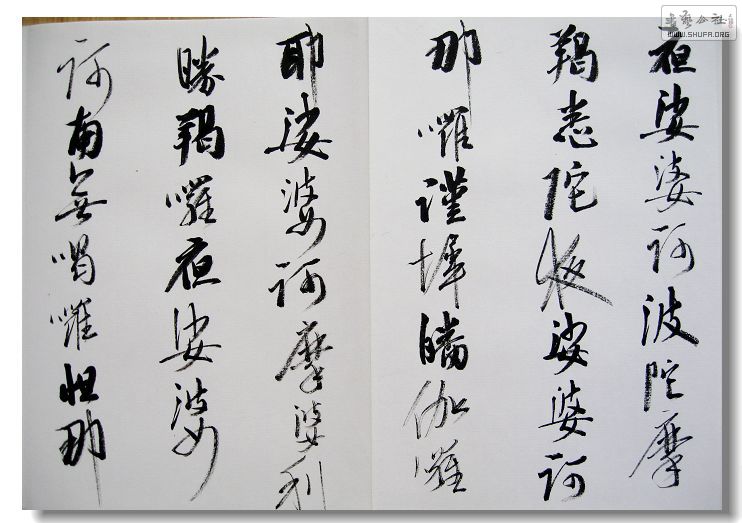 夜娑婆訶波陀摩
羯悉陀夜娑婆訶
那囉謹墀皤伽囉
耶娑婆訶摩婆利
勝羯囉夜娑婆
訶南無喝囉怛那
公社
WWW.SHUFA.ORG